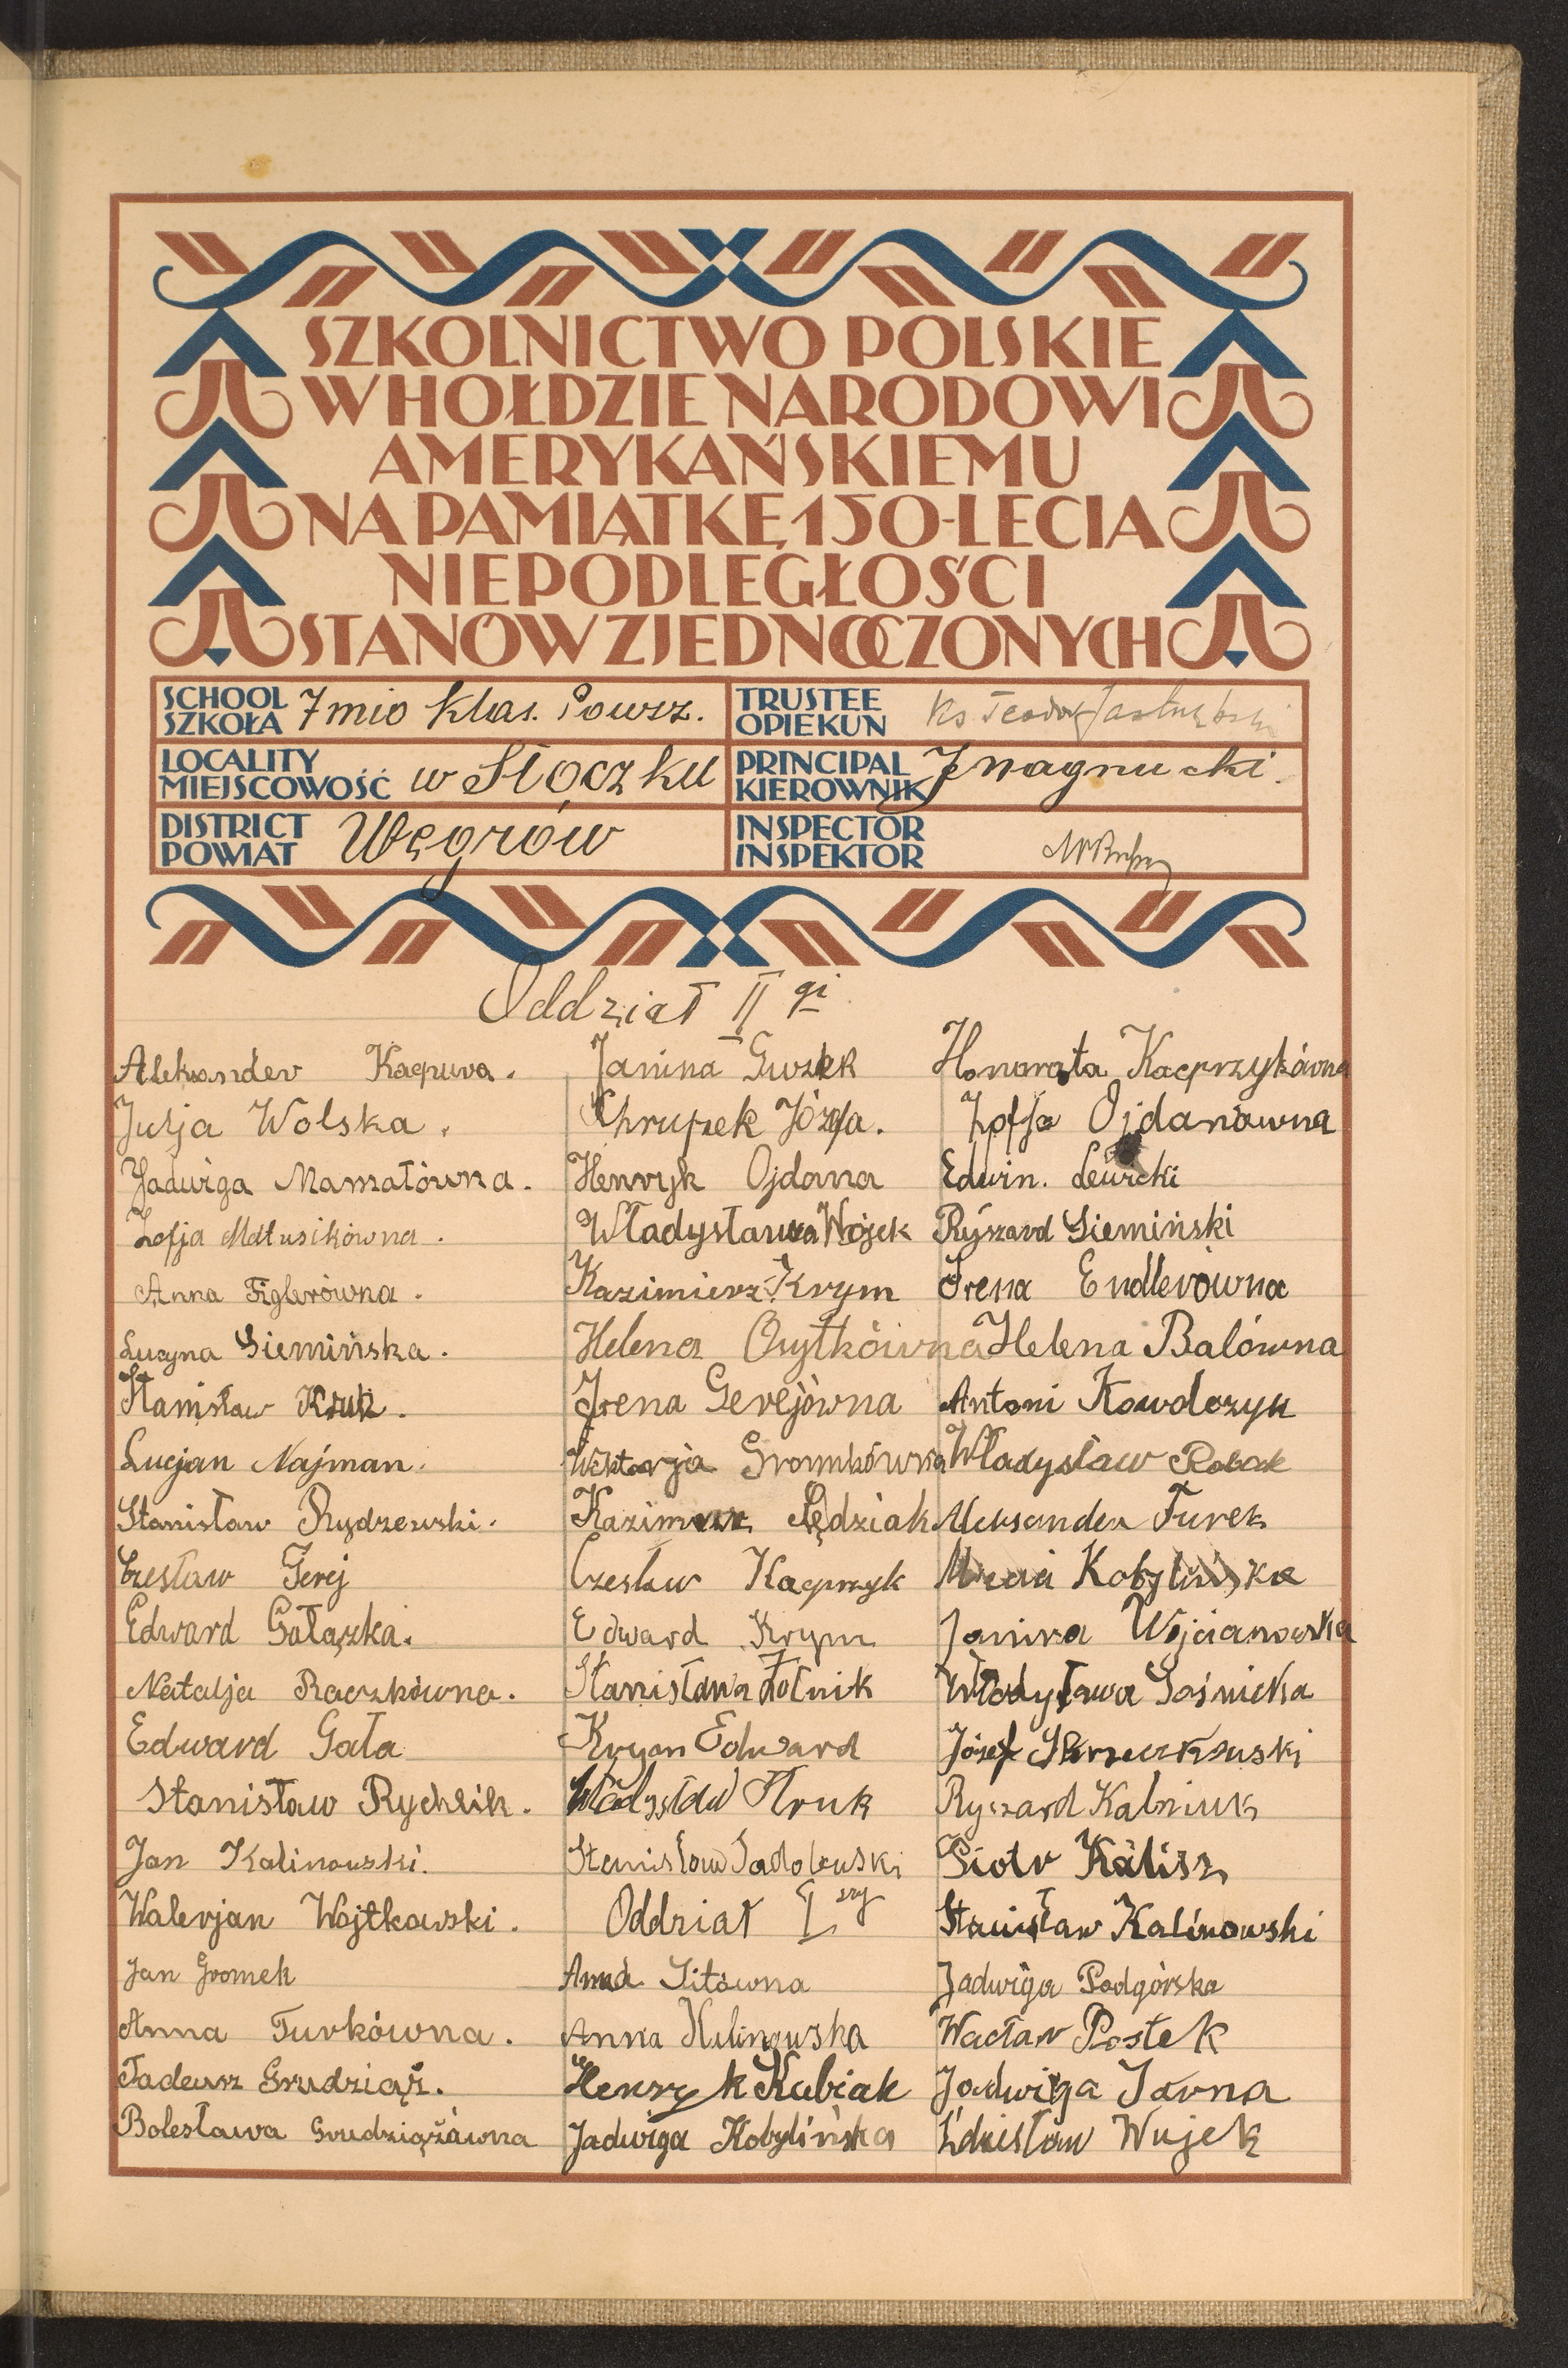 SZKOLNICTWO POLSKIE
W HOŁDZIE NARODOWI
AMERYKAŃSKIEMU
NA PAMIĄTKĘ 150-LECIA
NIEPODLEGŁOŚCI
STANÓW ZJEDNOCZONYCH
SCHOOL
SZKOŁA 7mio klas. Powsz.
TRUSTEE
OPIEKUN Ks Teodor
LOCALITY
MIEJSCOWOŚĆ w Stoczku
PRINCIPAL
KIEROWNIK
DISTRICT
POWIAT Węgrów
INSPECTOR
INSPEKTOR
Oddział II gi
Aleksander
Julja Wolska.
Jadwiga
Zofja Matusikówna.
Anna Figlerówna.
Lucyna Siemińska.
Stanisław Kruk.
Lucjan Najman.
Stanisław Rydzewski.
Czesław Gerej
Edward Gałązka.
Natalja Raczkówna.
Edward Gała
Stanisław Rychlik.
Jan Kalinowski.
Walerjan Wojtkowski.
Jan Gromek
Anna Turkówna.
Tadeusz Grudziąż.
Bolesława Grudziążówna
Janina
Chrupek Józefa.
Henryk Ojdana
Władysława Wójek
Kazimierz Krym
Helena
Irena Gerejówna
Wiktorja
Kazimierz Sędziak
Czesław Kacprzyk
Edward Krym
Stanisława Żołnik
Edward
Władysław Struk
Stanisław Sadolewski
Oddział I szy
Anna Sitówna
Anna Kulinowska
Henryk Kubiak
Jadwiga Kobylińska
Honorata Kacprzykówna
Zofja Ojdanówna
Edwin. Lewicki
Ryszard Siemiński
Irena Endlerówna
Helena Balówna
Antoni Kowalczyk
Władysław Robak
Aleksander Turek
Kobylińska
Janina Wójcianowska
Władysława Sośnicka
Józef
Ryszard Kalniuk
Piotr Kalisz
Stanisław Kalinowski
Jadwiga Podgórska
Wacław Postek
Jadwiga Jarna
Zdzisław Wujek